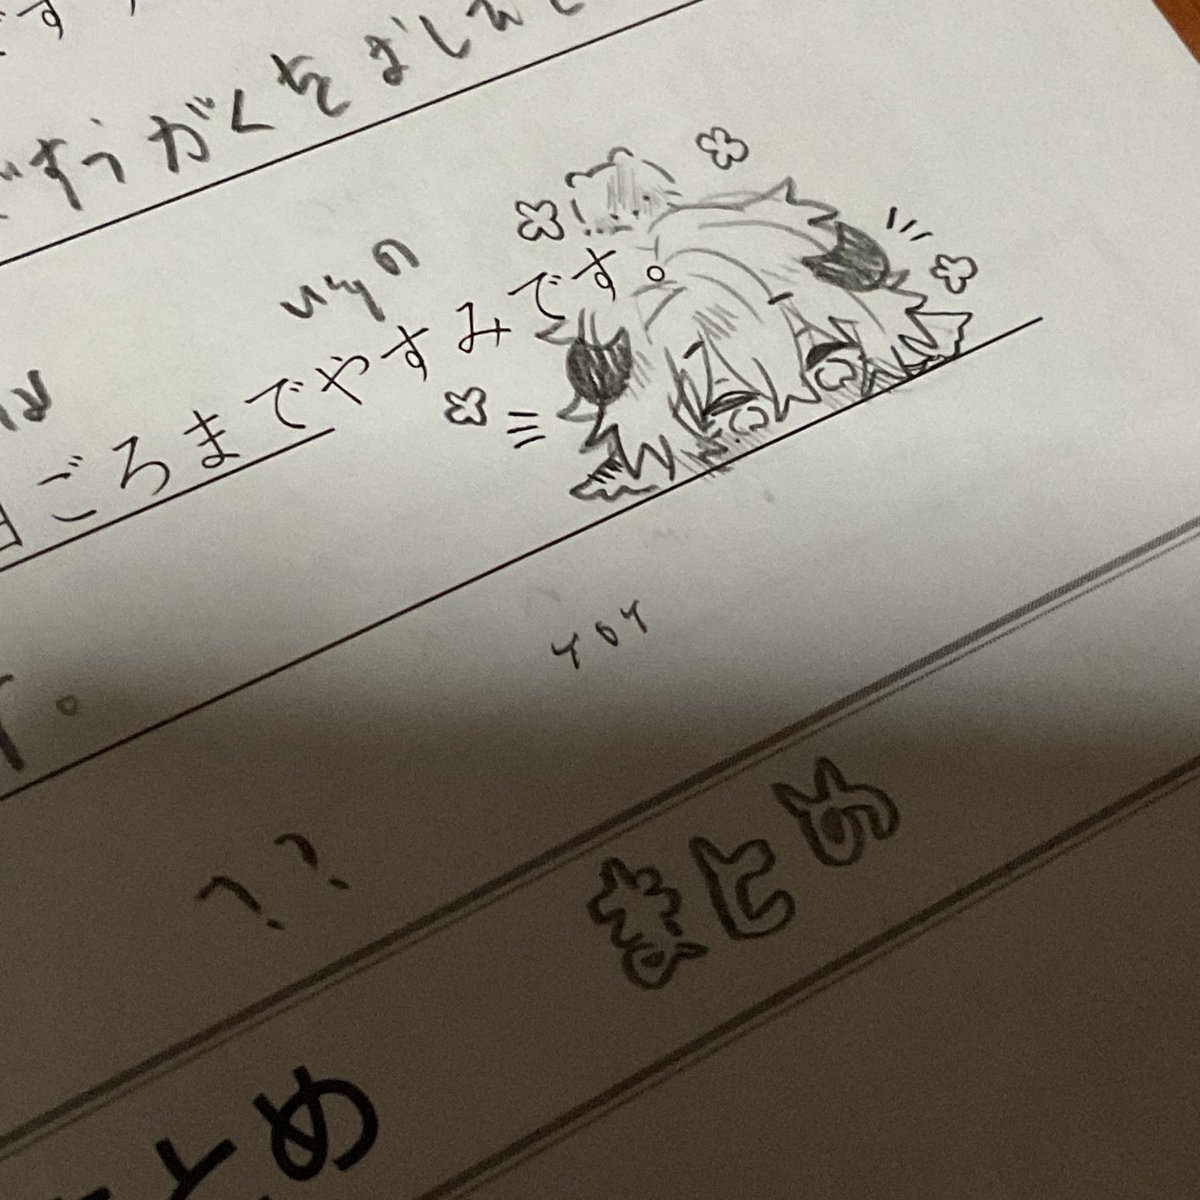 です
すうがくをおしえ
いもの
は
日ごろまでやすみです。
す。
YOY
??
まとめ
まとめ